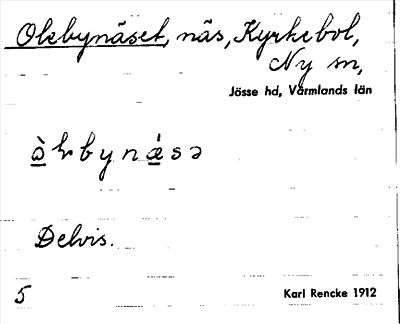 Okbynäset, näs, Kyrkebol,
Ny sn,
Jösse hd, Värmlands län
ò̲kbyná̲sə
Delvis.
5
Karl Rencke 1912